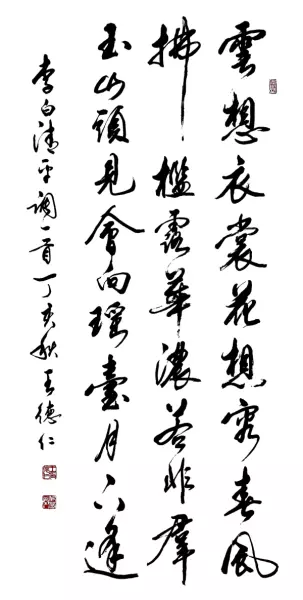 雲想衣裳花想容春風
拂檻露華濃若非羣
玉山頭見會向瑶臺月下逢
李白清平調一首丁亥秋王德仁